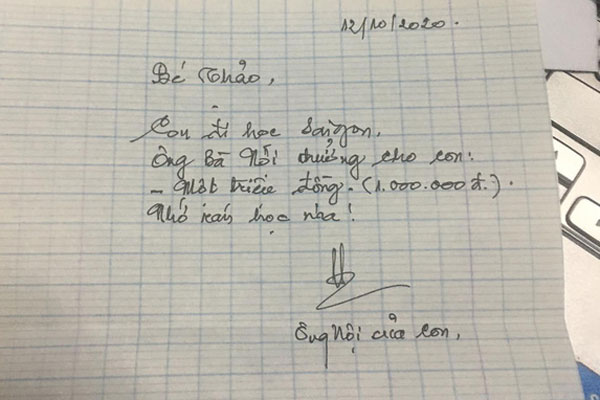 12/10/2020.
Bé Thảo,
Con đi học Saigon,
Ông Bà Nội thưởng cho con:
- Một triệu đồng. (1.000.000đ.).
Nhớ ráng học nha!
Ông Nội của con,